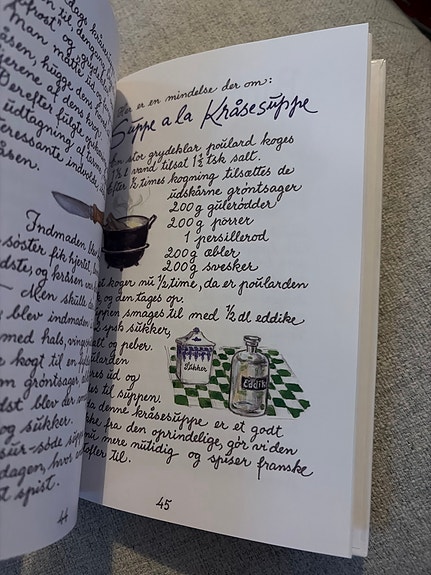 dags kråse
til denne
frost og
man måtte ud
åsen, hugge dens
jerene af dens krop
Derefter fulgte
udtagning af tarme
eressante indvolde
råsen.
Indmaden blev
søster fik hjertet,
edste, og kråsen
Men skulle
blev indmaden
med hals, vinge
kogt til en
grøntsager
dst blev der
og sukker.
sur-søde suppe
dagen, hvor
t spist.
44
er er en mindelse der om:
Suppe a la Kråsesuppe
n stor grydeklar poulard koges
1½ l vand tilsat 1½ tsk salt.
fter ½ times kogning tilsættes de
udskårne grøntsager
200 g gulerødder
200 g porrer
1 persillerod
200 g æbler
200 g svesker
et koger nu ½ time, da er poularden
, og den tages op.
ppen smages til med ½ dl eddike
spsk sukker,
alt og peber.
ularden
res ud og
es til suppen.
Sukker
Eddike
a denne kråsesuppe er et godt
ke fra den oprindelige, gør vi den
nu mere nutidig og spiser franske
tofler til.
45